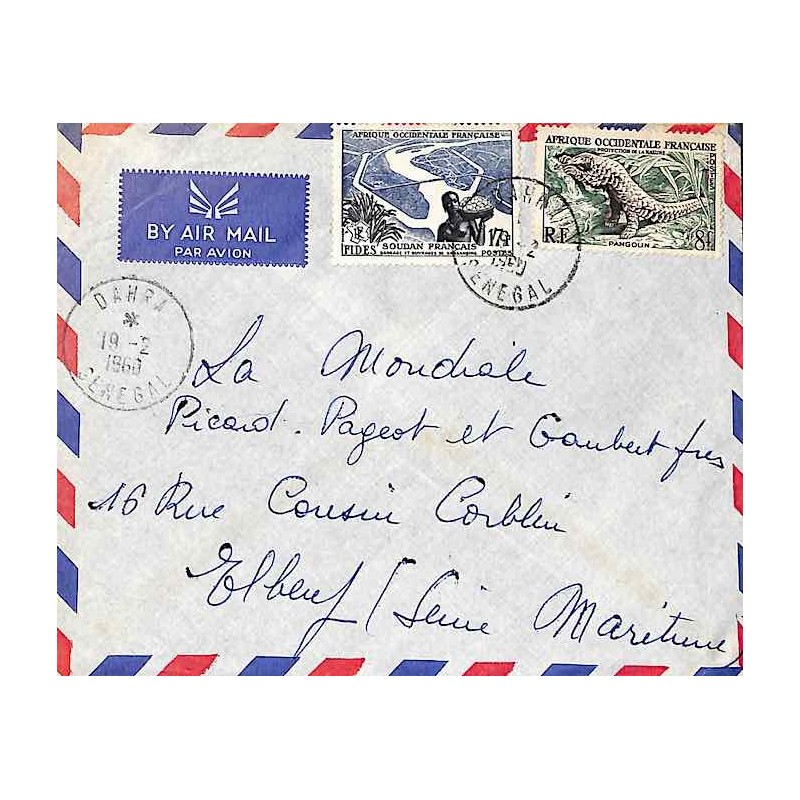 AFRIQUE OCCIDENTALE FRANÇAISE
FIDES
SOUDAN FRANÇAIS
POSTES
17F
AFRIQUE OCCIDENTALE FRANÇAISE
PROTECTION DE LA NATURE
POSTES
R.F.
PANGOLIN
8F
BY AIR MAIL
PAR AVION
DAHRA
19 -2
1960
SENEGAL
DAHRA
-2
1960
SENEGAL
La Mondiale
Picard. Pageot et Gaubert fres
16 Rue Cousin Corblin
Elbeuf (Seine Maritime)